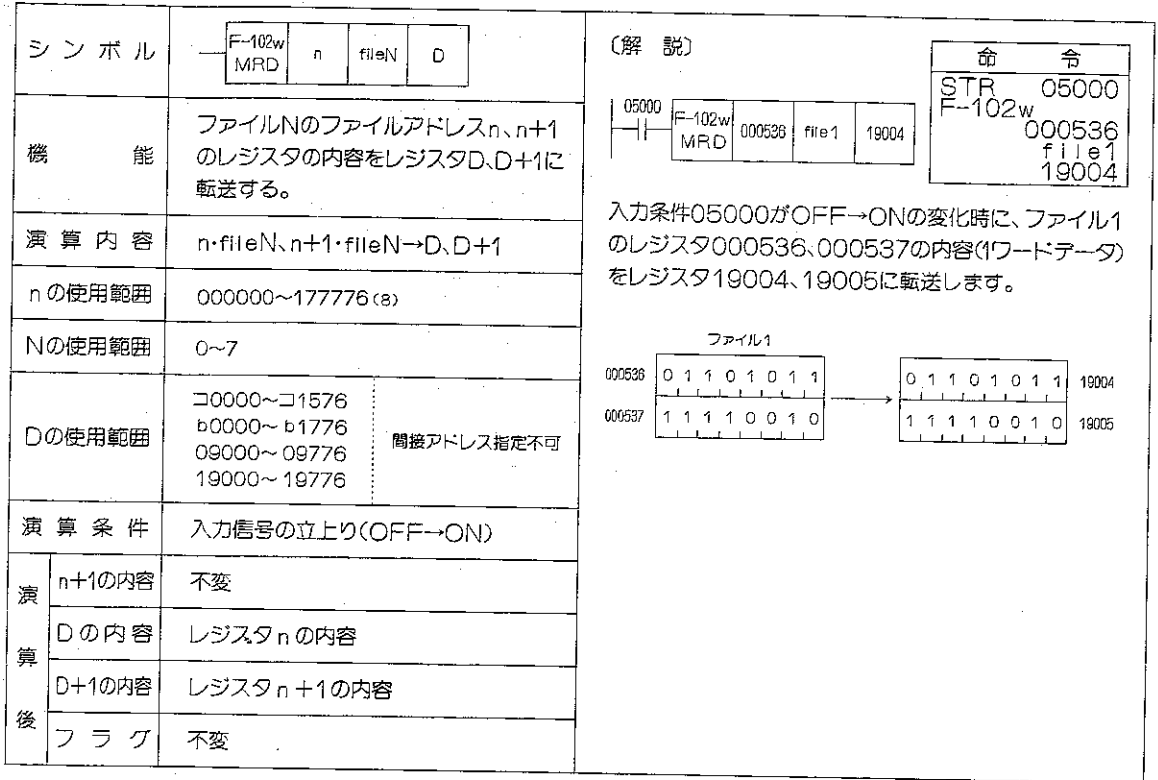 シンボル
F-102w
MRD
n
fileN
D
機能
ファイルNのファイルアドレスn、n+1
のレジスタの内容をレジスタD、D+1に
転送する。
演算内容
n・fileN、n+1・fileN→D、D+1
nの使用範囲
000000~177776(8)
Nの使用範囲
0~7
Dの使用範囲
コ0000~コ1576
b0000~b1776
09000~09776
19000~19776
間接アドレス指定不可
演算条件
入力信号の立上り(OFF→ON)
演算後
n+1の内容
不変
Dの内容
レジスタnの内容
D+1の内容
レジスタn+1の内容
フラグ
不変
〔解 説〕
05000
F-102w
MRD
000536
file1
19004
命 令
STR 05000
F-102w
000536
file1
19004
入力条件05000がOFF→ONの変化時に、ファイル1
のレジスタ000536、000537の内容(1ワードデータ)
をレジスタ19004、19005に転送します。
ファイル1
000536 0 1 1 0 1 0 1 1
000537 1 1 1 1 0 0 1 0
0 1 1 0 1 0 1 1 19004
1 1 1 1 0 0 1 0 19005